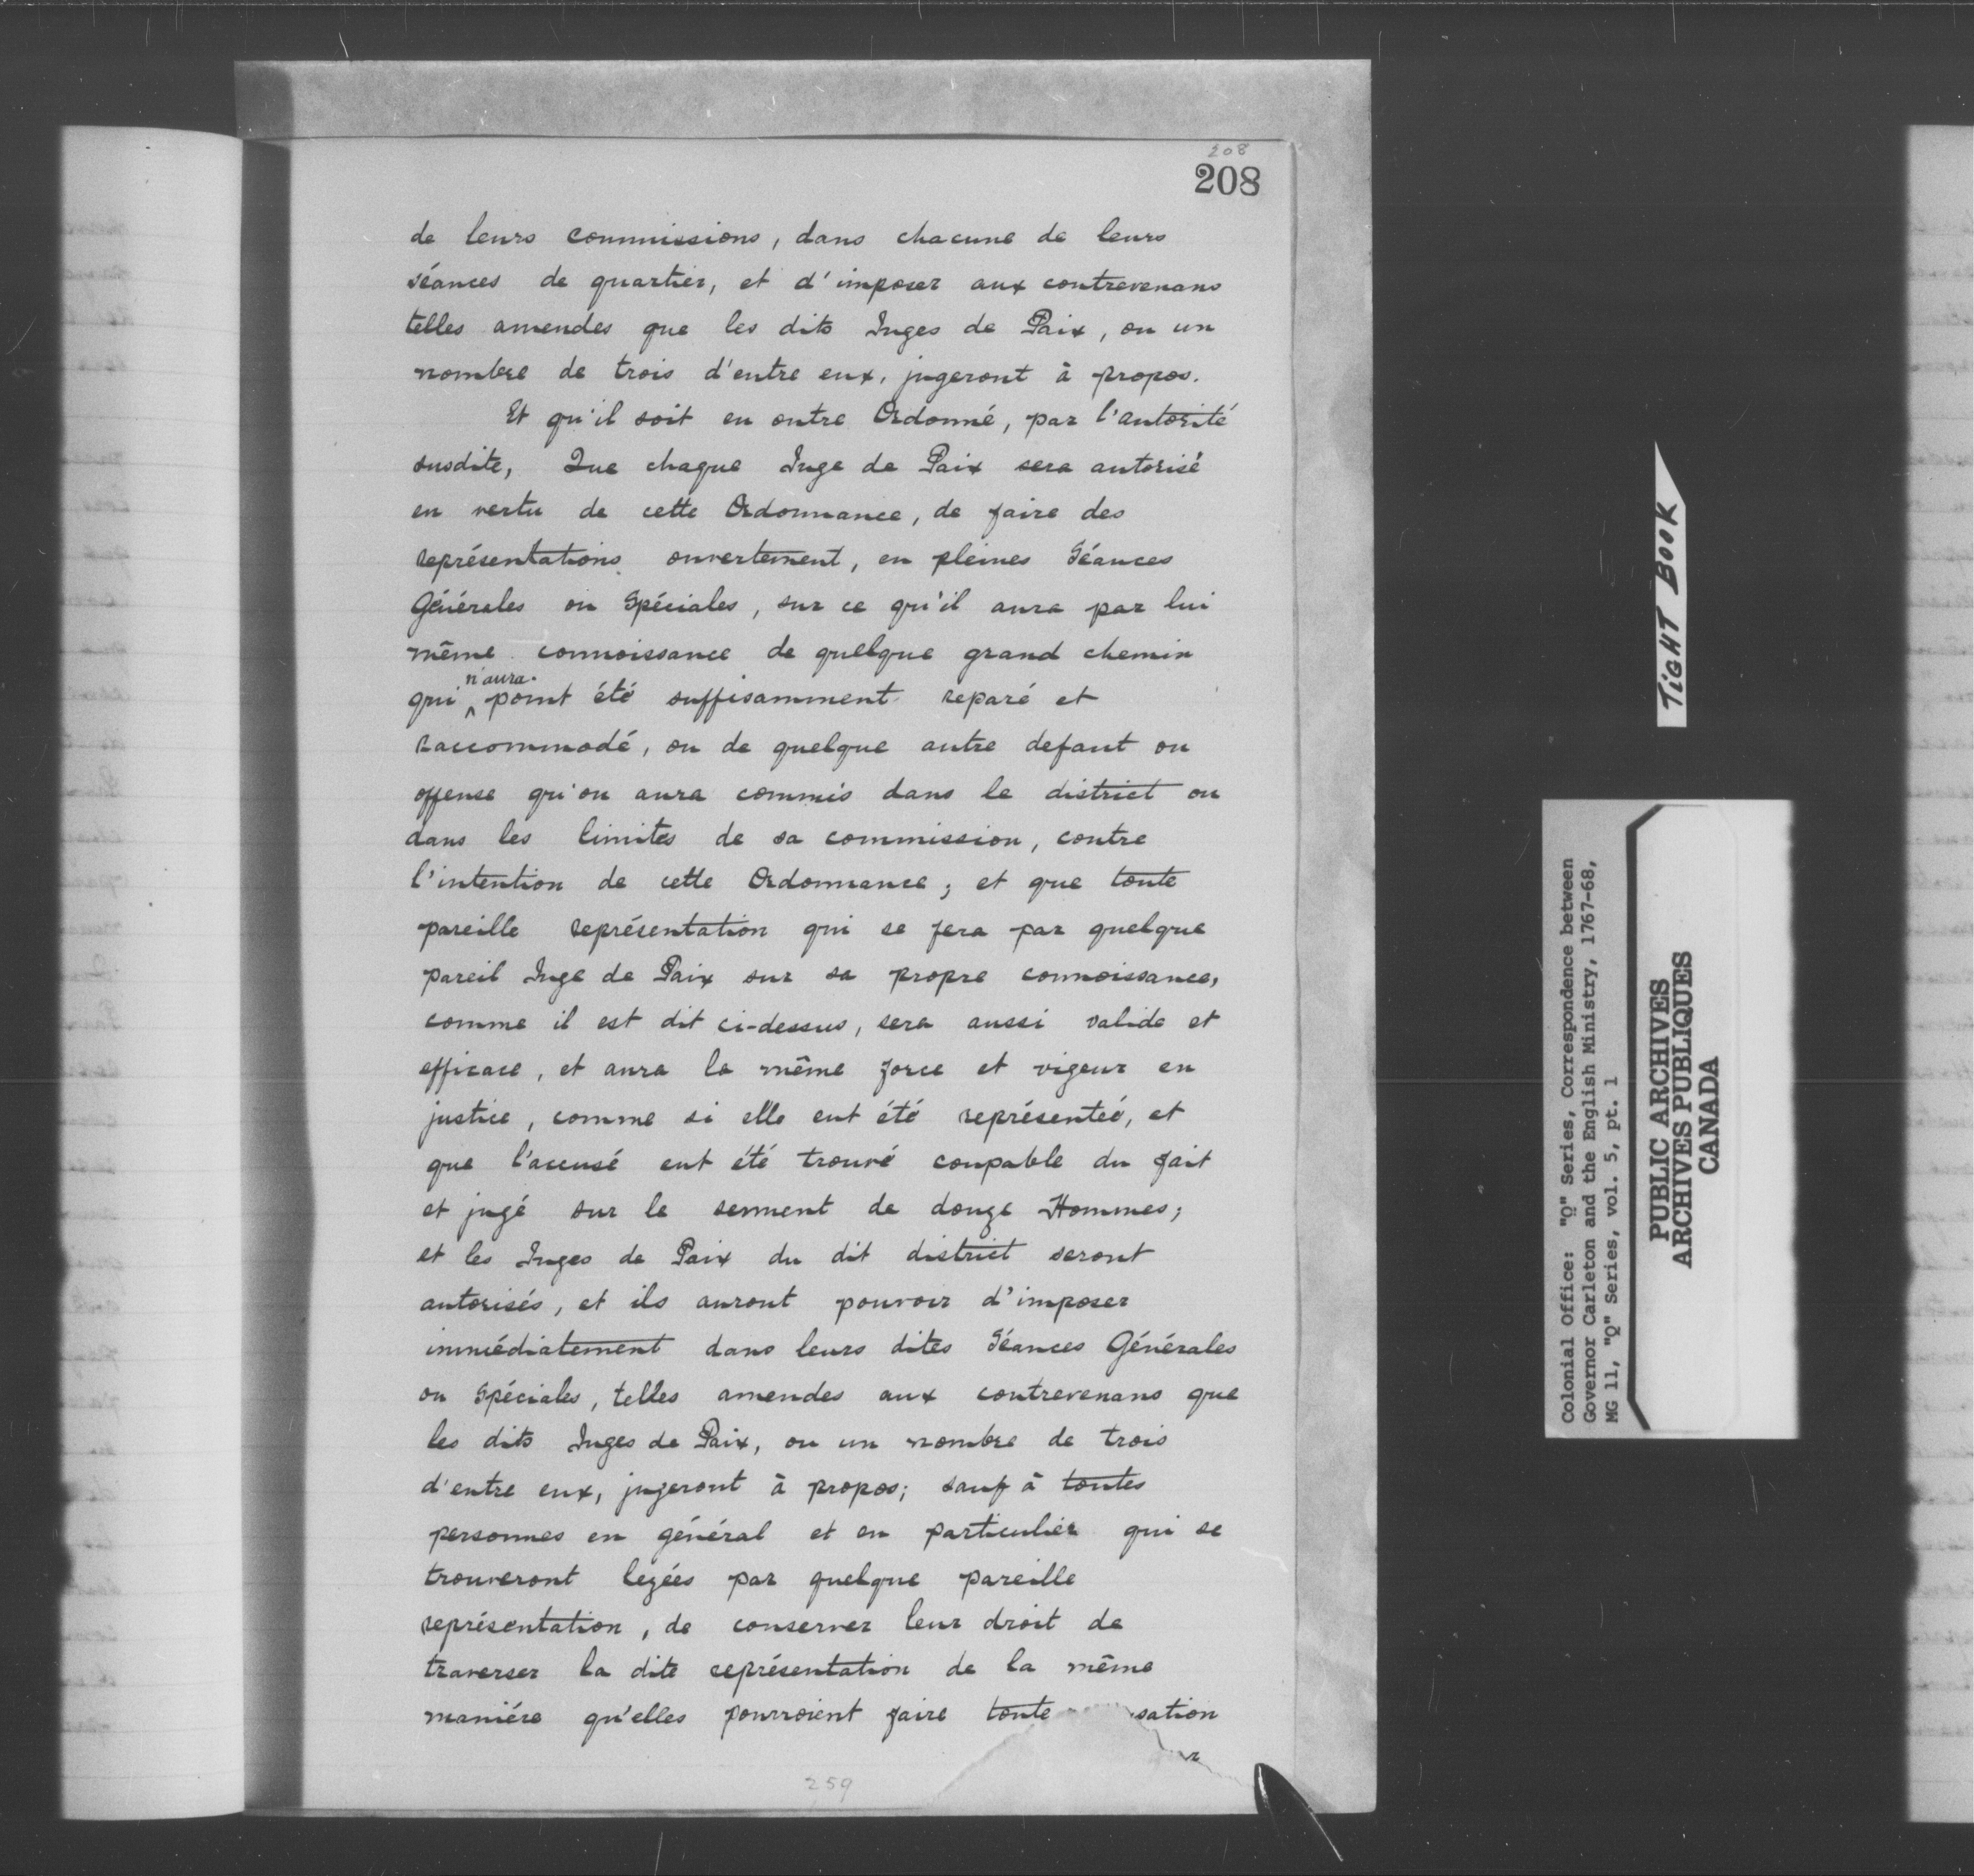 208
208
de leurs commissions, dans chacune de leurs
séances de quartier, et d'imposer aux contrevenans
telles amendes que les dits Juges de Paix, ou un
nombre de trois d'entre eux, jugeront à propos.
Et qu'il soit en outre Ordonné, par l'autorité
susdite, Que chaque Juge de Paix sera autorisé
en vertu de cette Ordonnance, de faire des
représentations ouvertement, en pleines Séances
Générales ou Spéciales, sur ce qu'il aura par lui
même connoissance de quelque grand chemin
qui n'aura point été suffisamment reparé et
raccommodé, ou de quelque autre defaut ou
offense qu'on aura commis dans le district ou
dans les limites de sa commission, contre
l'intention de cette Ordonnance; et que toute
pareille représentation qui se fera par quelque
pareil Juge de Paix sur sa propre connoissance,
comme il est dit ci-dessus, sera aussi valide et
efficace, et aura la même force et vigeur en
justice, comme si elle eut été représenteé, et
que l'accusé eut été trouvé coupable du fait
et jugé sur le serment de douze Hommes;
et les Juges de Paix du dit district seront
autorisés, et ils auront pouvoir d'imposer
immédiatement dans leurs dites Séances Générales
ou Spéciales, telles amendes aux contrevenans que
les dits Juges de Paix, ou un nombre de trois
d'entre eux, jugeront à propos; sauf à toutes
personnes en général et en particulier qui se
trouveront lezées par quelque pareille
représentation, de conserver leur droit de
traverser la dite représentation de la même
maniére qu'elles pourroient faire toute sation
259
TIGHT BOOK
Colonial Office: "Q" Series, Correspondence between
Governor Carleton and the English Ministry, 1767-68,
MG 11, "Q" Series, vol. 5, pt. 1
PUBLIC ARCHIVES
ARCHIVES PUBLIQUES
CANADA